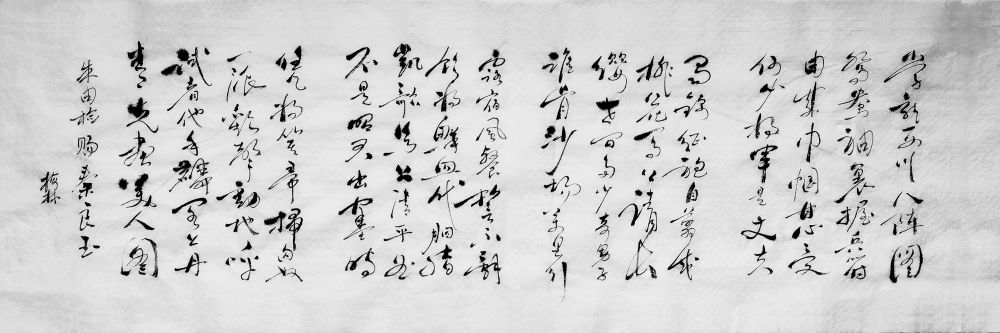 学就西川八阵图
鸳鸯袖裏握兵符
由来巾帼甘心受
何必将军是丈夫
蜀锦征袍自剪成
桃花马上请长
缨世间多少奇男子
谁肯沙场万里行
露宿风餐誓不辞
饮将鲜血代胭脂
凯歌马上清平曲
不是昭君出塞时
凭将箕帚扫奴
一派欢声动地呼
试看他年麟阁上丹
青先画美人图
朱由检赐秦良玉